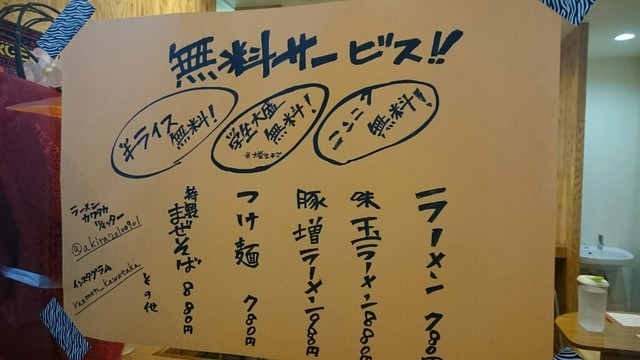 無料サービス!!
半ライス無料!
学生大盛無料!
ニンニク無料!!
ラーメン 780円
味玉ラーメン 880円
豚増ラーメン 980円
つけ麺 780円
特製まぜそば 880円
その他
ラーメン
カワタカ
ツイッター
@akira20100901
インスタグラム
raamen_kawataka